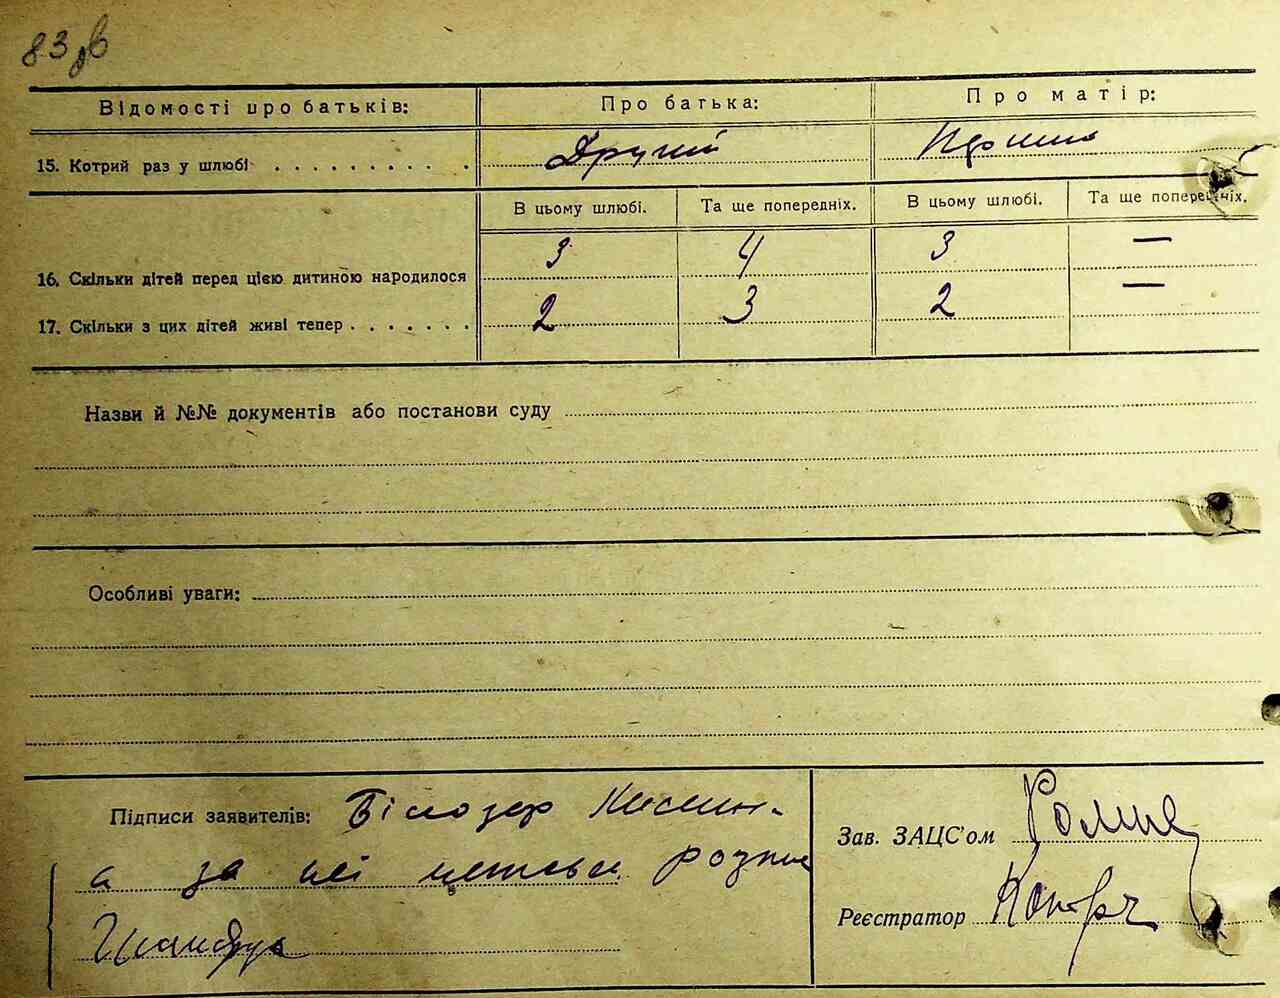 83 зв
Відомості про батьків: Про батька: Про матір:
15. Котрий раз у шлюбі . . . . . . . . . . Другий Перший
В цьому шлюбі. Та ще попередніх. В цьому шлюбі. Та ще попередніх.
16. Скільки дітей перед цією дитиною народилося 3 4 3 —
17. Скільки з цих дітей живі тепер . . . . . . . 2 3 2 —
Назви й №№ документів або постанови суду
Особливі уваги:
Підписи заявителів: Білозер
а за неї
Зав. ЗАЦС'ом
Реєстратор